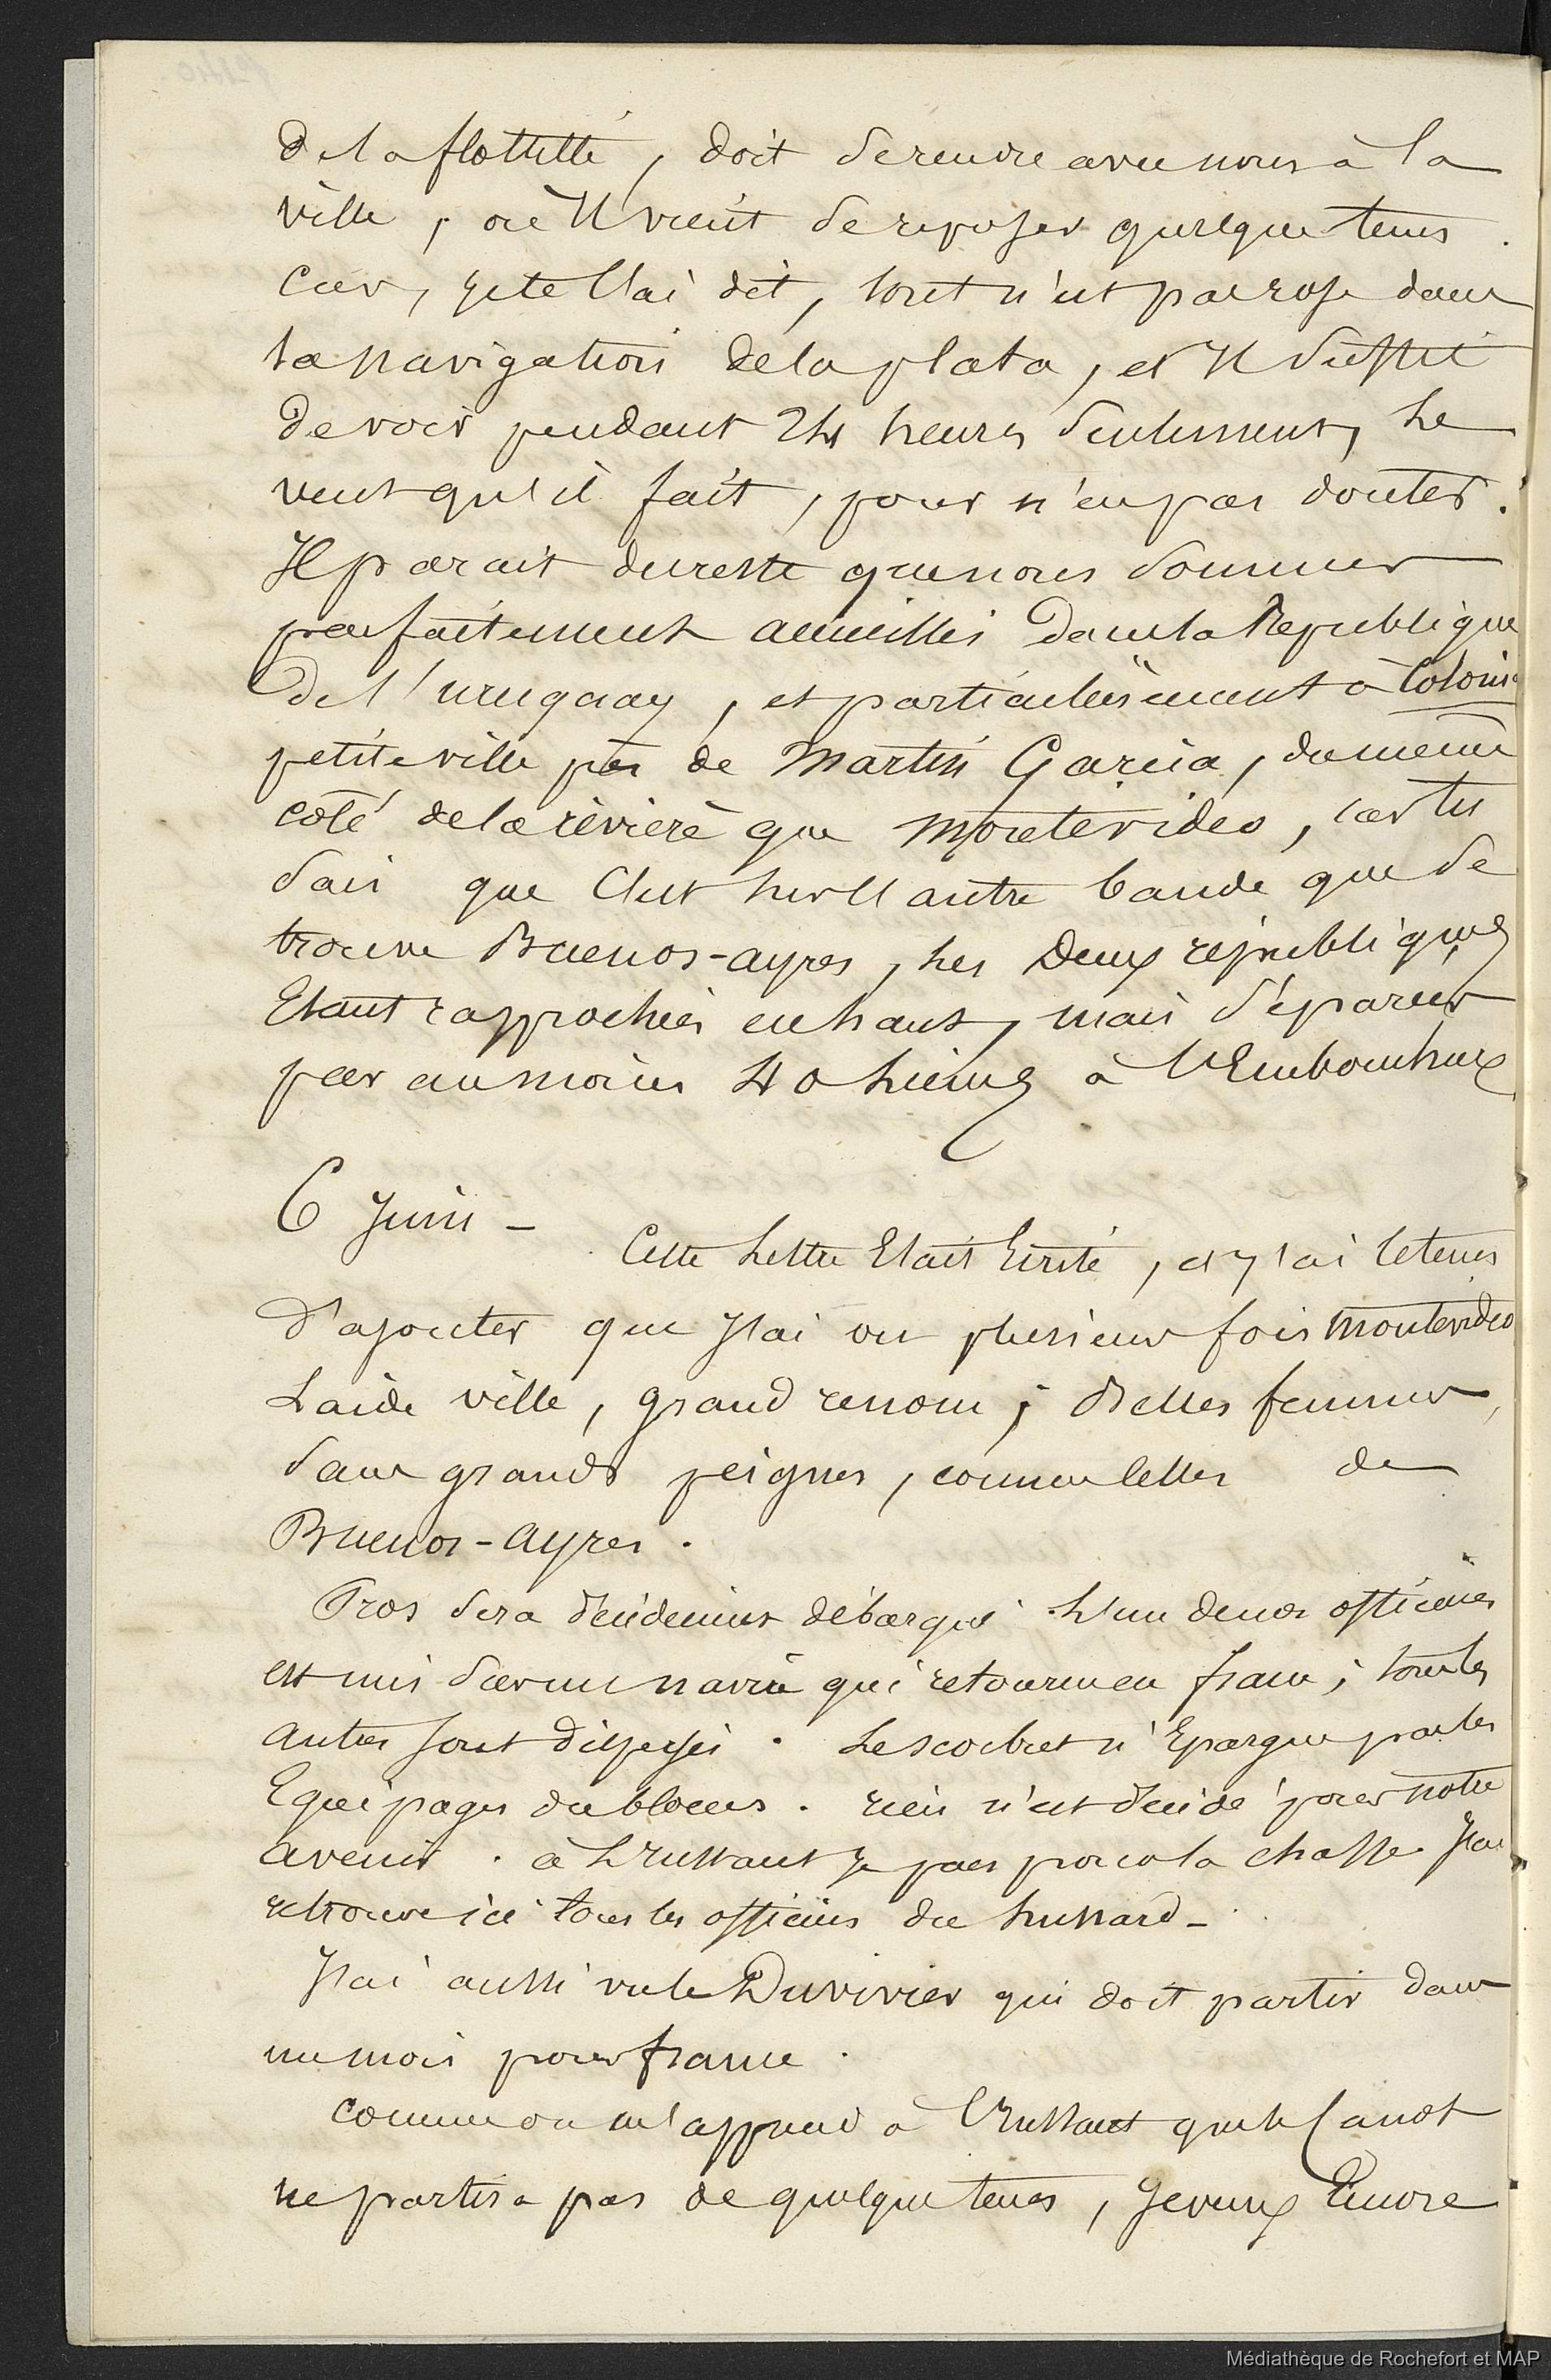 de la flottille, doit se rendre avec nous à la
ville, où il vient se reposer quelque tems.
Car, je te l'ai dit, tout n'est pas rose dans
la navigation de la plata, et il suffit
de voir pendant 24 heures seulement, le
vent qu'il fait, pour n'en pas douter.
Il parait du reste que nous sommes
parfaitement accueillis dans la Republique
de l'uruguay, et particulièrement à Colonia
petite ville près de Martin Garcia, du même
côté de la rivière que Montevideo, car tu
sais que c'est sur l'autre bande que se
trouve Buenos-ayres, les deux républiques
Etant rapprochées en haut, mais séparées
par au moins 40 lieues à l'Embouchure
6 Juin -
Cette lettre Etait Ecrite, et j'ai le tems
d'ajouter que j'ai vu plusieurs fois Montevideo
Laide ville, grand renom ; Belles femmes,
sans grands peignes, comme celles de
Buenos-Ayres.
Pros sera décidemment débarqué. L'un de nos officiers
est mis sur un navire qui retourne en france ; tous les
autres sont dispersés. Le scorbut n'Epargne pas les
Equipages du blocus. rien n'est décidé pour notre
avenir. à l'instant je pars pour la chasse J'ai
retrouvé ici tous les officiers du hussard -
J'ai aussi vu le Duvivier qui doit partir dans
un mois pour france.
Comme on m'apprend à l'instant que le Canot
ne partira pas de quelque tems, Je veux Encore
Médiathèque de Rochefort et MAP